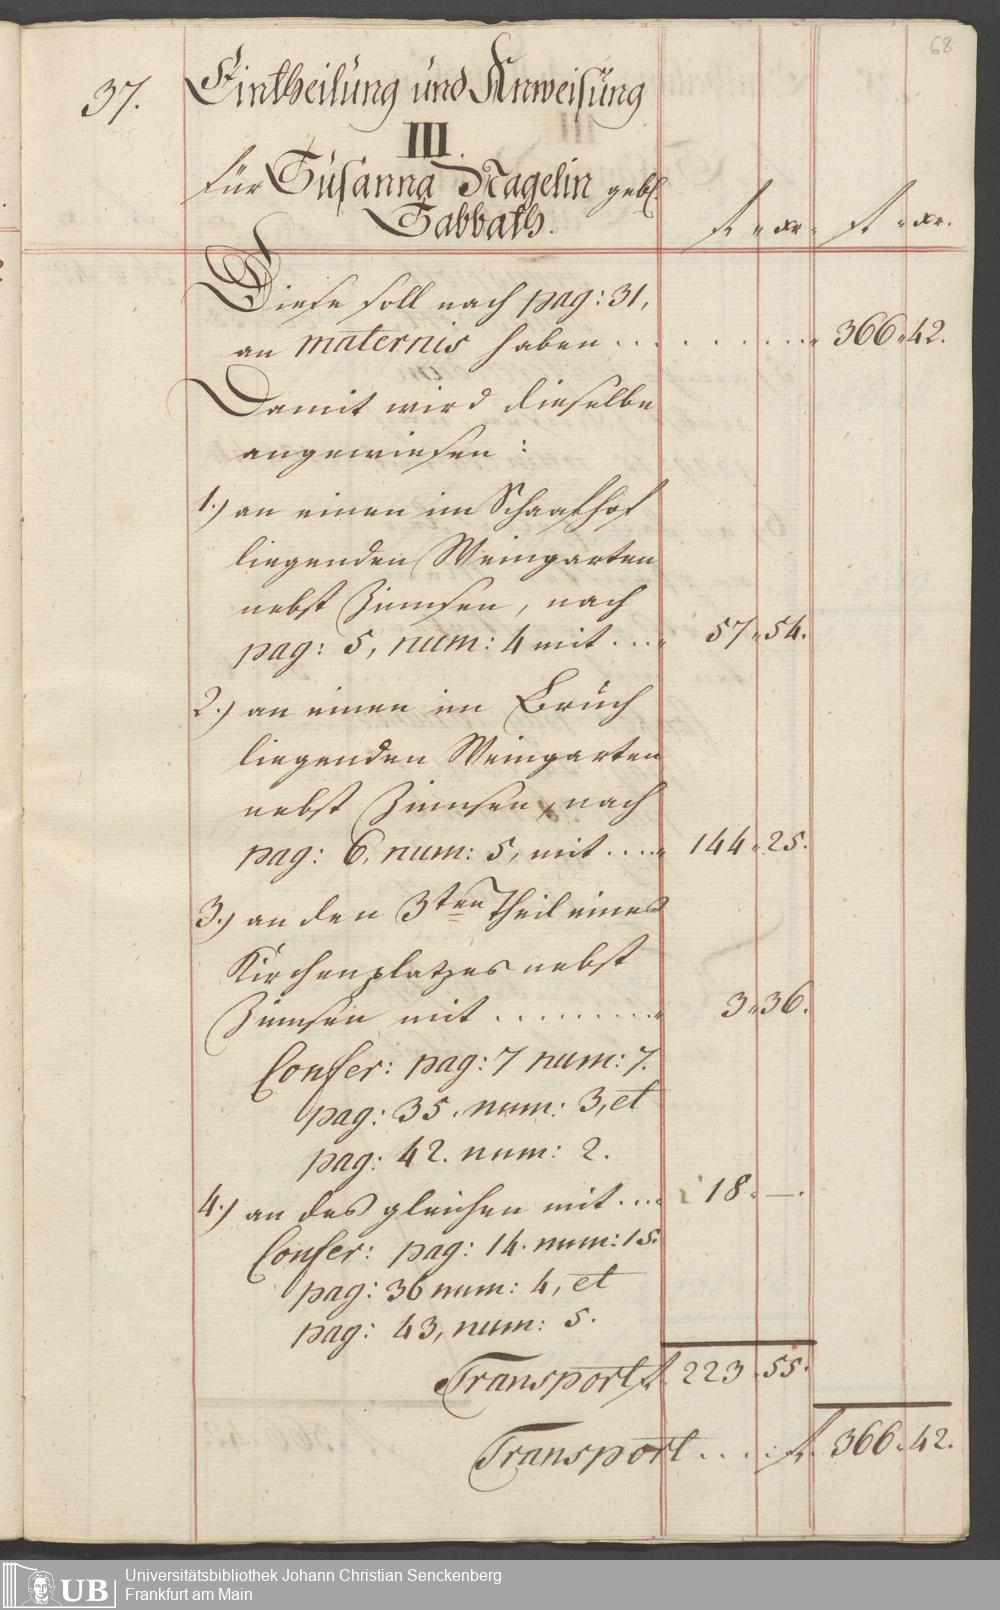 68
37. Eintheilung und Anweisung
III.
für Susanna Nagelin gebl.
Sabbath. fl " xr. fl " xr.
Diese soll nach pag: 31,
an maternis haben . . . . . . . . . " 366 " 42.
Damit wird dieselbe
angewiesen :
1.) an einen im Schaafhof
liegenden Weingarten
nebst Zinnsen, nach
pag: 5, num: 4 mit . . . " 57 " 54.
2.) an einen im Bruch
liegenden Weingarten
nebst Zinnsen, nach
pag: 6, num: 5, mit . . . . " 144 " 25.
3.) an den 3ten Theil eines
Kirchenplatzes nebst
Zinnsen mit . . . . . . . . . " 3 " 36.
Confer: pag: 7 num: 7.
pag: 35. num: 3, et
pag: 42. num: 2.
4.) an des gleichen mit . . . " 18 " —.
Confer: pag: 14. num: 15.
pag: 36 num: 4, et
pag: 43, num: 5.
Transport fl. 223 " 55.
Transport . . . . fl. 366 " 42.
UB
Universitätsbibliothek Johann Christian Senckenberg
Frankfurt am Main